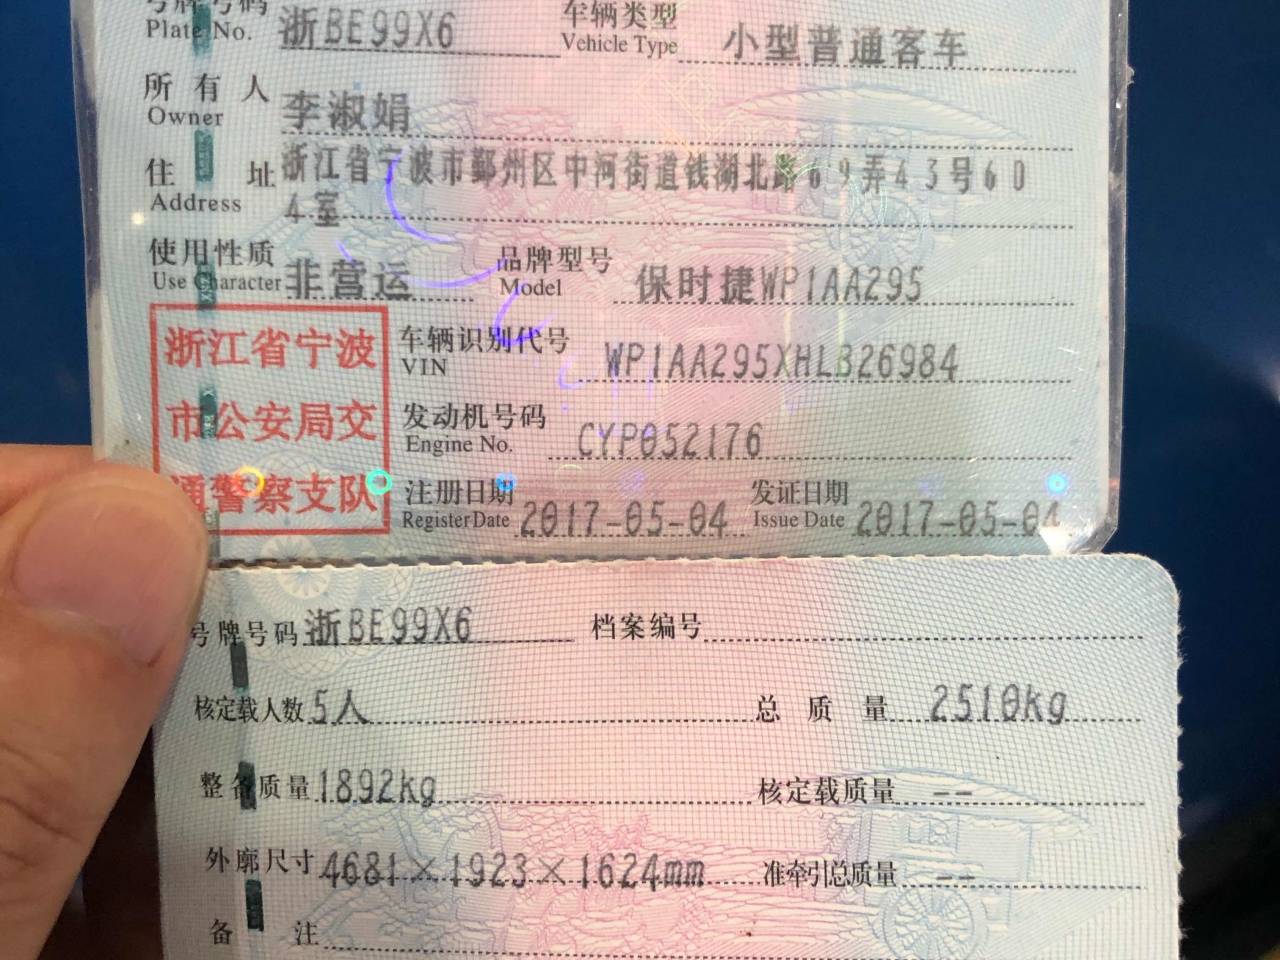 号牌号码 浙BE99X6 车辆类型 小型普通客车
Plate No. Vehicle Type
所有人 李淑娟
Owner
住址 浙江省宁波市鄞州区中河街道钱湖北路69弄43号60
Address 4室
使用性质 非营运 品牌型号 保时捷WP1AA295
Use Character Model
浙江省宁波
市公安局交
通警察支队
车辆识别代号 WP1AA295XHLB26984
VIN
发动机号码 CYP052176
Engine No.
注册日期 2017-05-04 发证日期 2017-05-04
Register Date Issue Date
号牌号码 浙BE99X6 档案编号
核定载人数 5人 总质量 2510kg
整备质量 1892kg 核定载质量 --
外廓尺寸 4681×1923×1624mm 准牵引总质量 --
备注